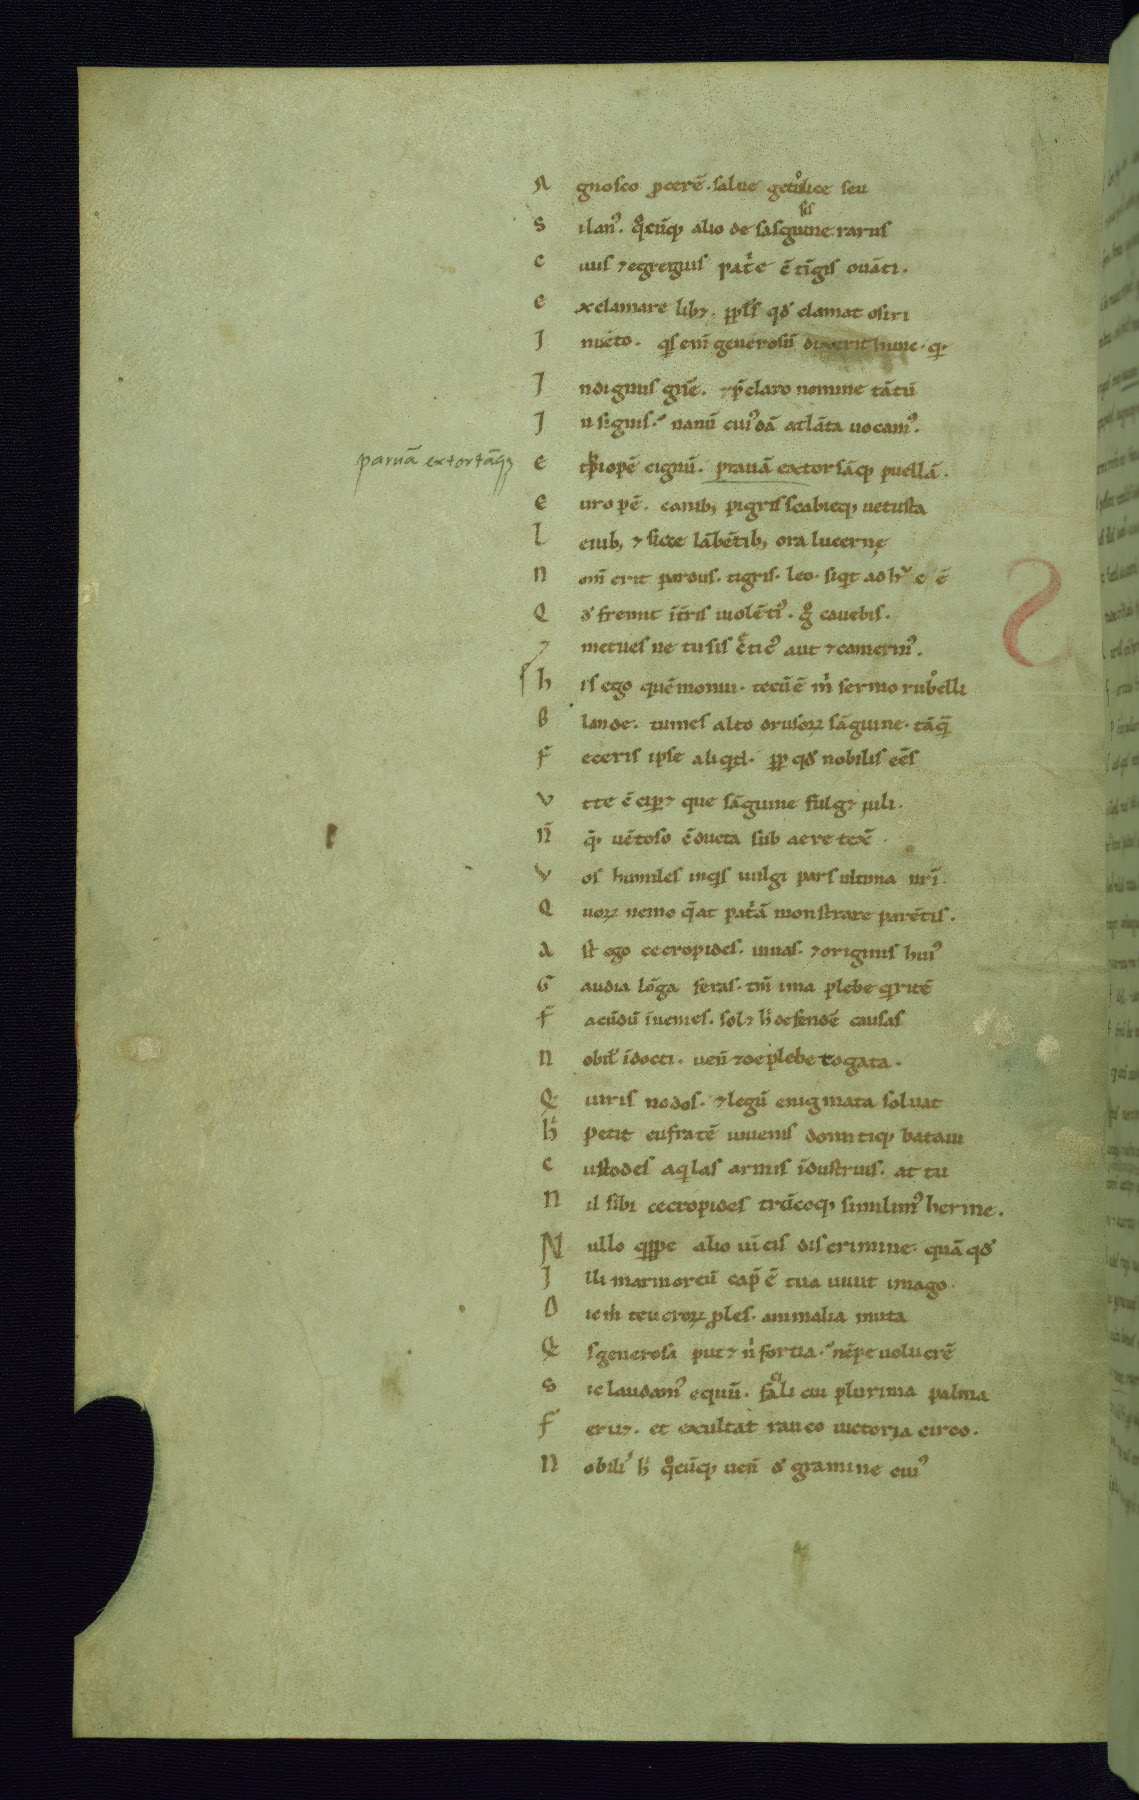 A gnosco pcerē. salue getulice seu
S ilanꝰ. qͦcūqꝫ alio de sasguine rarus
sis
C iuis ⁊egregius pat͛e ē tīgis ouāti.
E xclamare libꝫ. pplꝰs qđ clamat osiri
I nuēto. qͥs eni̅ generosū dixerit hunc. qͥ
I ndignus gn̄e. ⁊p̄claro nomine tātū
I nsignis. nanū cuiꝰdā atlāta uocamꝰ.
paruā extortāqꝫ
E thiopē cignū. prauā extorsāqꝫ puellā.
E uropē. canibꝫ pigris scabieqꝫ uetusta
L euibꝫ ⁊ sicce lābētibꝫ ora lucerne
N om̄ erit pardus. tigris. leo. siqͥt adhͨ c ē
Q đ fremit īt̄ris uiolētiꝰ. gͦ cauebis.
⁊ metues ne tu sis c̄ticꝰ aut ⁊camerinꝰ.
h is ego quēmonui. tecūē m̄ sermo rubelli
B lande. tumes alto drusoꝝ sāguine. tāqͣ̄
F eceris ipse aliqͥd. pp qđ nobilis eēs
V t te ēcipꝫ que sāguine fulgꝫ iuli.
N̄ q̄ uētoso c̄ducta sub aere texē
V os humiles inqͥs uulgi pars ultima nr̄i
Q uoꝝ nemo q̄at pat͛ā monstrare parētis.
A st ego cecropides. uiuas. ⁊originis huiꝰ
G audia lōga feras. tm̄ ima plebe qͥritē
F acūdū īuenies. solꝫ h̄ defendē causas
N obil̄ īdocti. ueni̅ ⁊de plebe togata.
Q uiris nodos. ⁊legū enigmata soluat
h̄ petit eufratē iuuenis domitiqꝫ bataui
C ustodes aqͥlas armis īdustrius. at tu
N il nisi cecropides trūcoqꝫ simillimꝰ herme.
N ullo qͥppe alio uīcis discrimine. quā qđ
I lli marmoreū cap̄ ē tua uiuit imago.
D ic m̄ teucroꝝ ples. animalia muta
Q sgenerosa putꝫ n̄ fortia. nēpe uolucrē
S ic laudamꝰ equū. facili cui plurima palma
F eruꝫ. et exultat rauco uictoria circo.
N obilꝰ h̄ qͦcūqꝫ ueni̅ đ gramine cuiꝰ